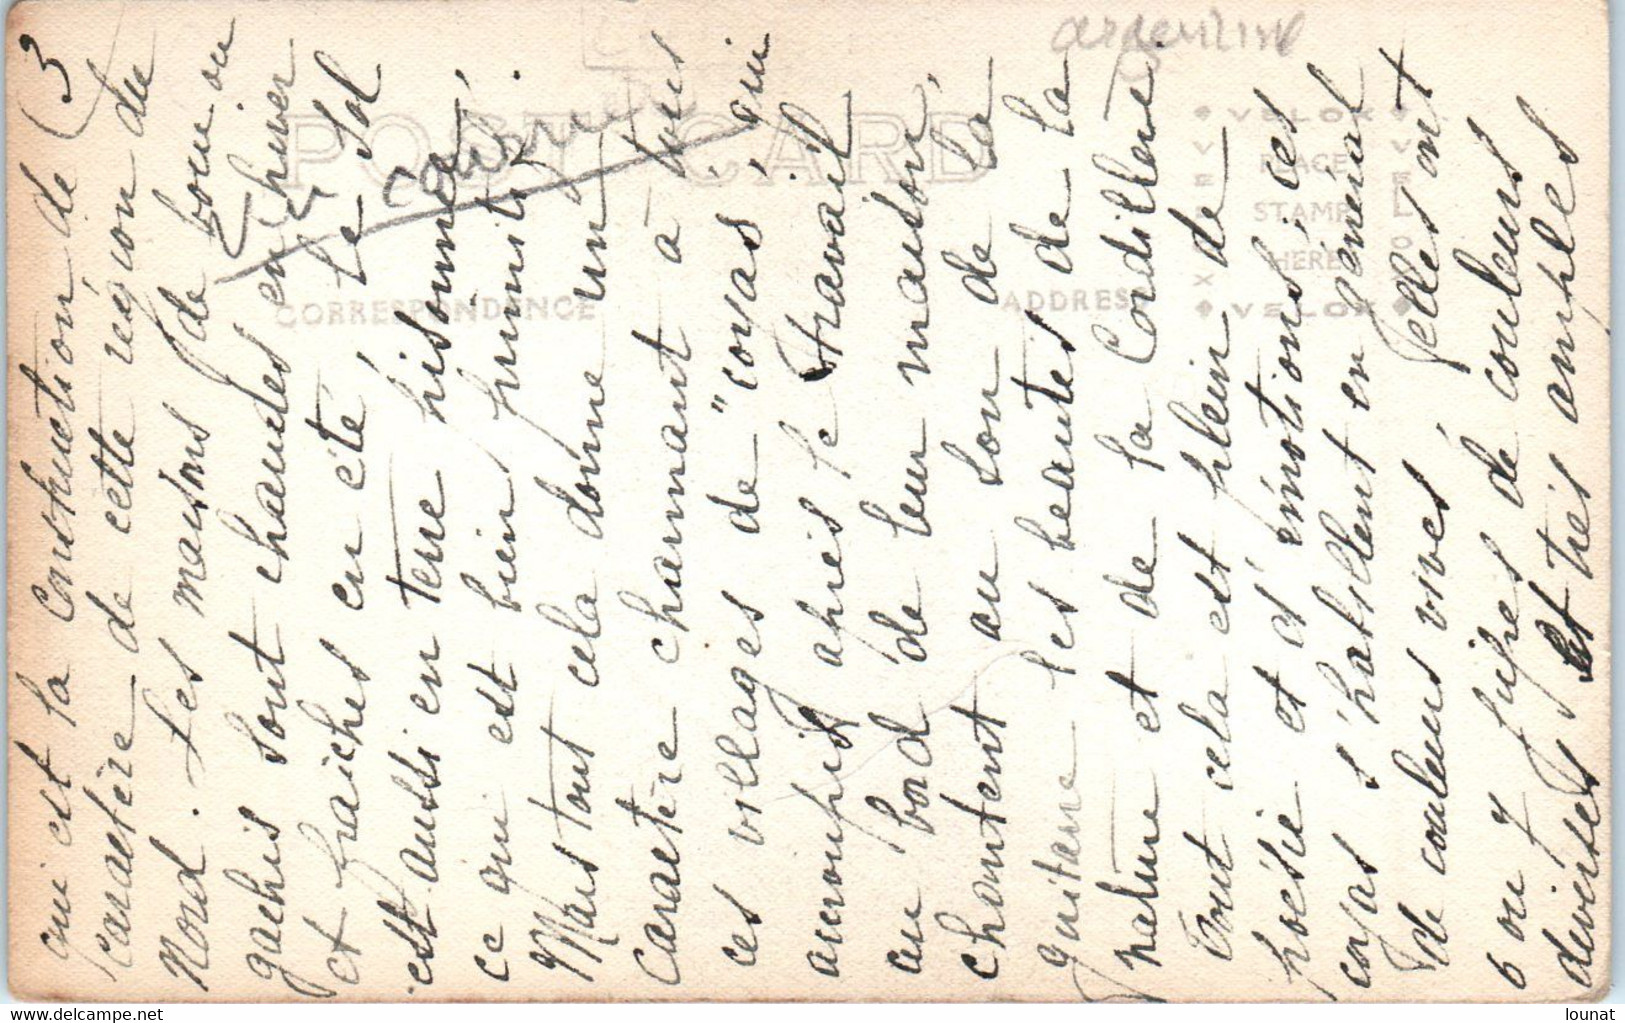 (3
qui est la construction de
caractère de cette région du
Nord. Les maisons de boue ou
gachis sont chaudes en hiver
et fraiches en été, le sol
est aussi en terre
ce qui est bien primitif.
Mais tout cela donne un
caractère charmant à tous
ces villages de "coyas", qui
accroupis après le travail
au bord de leur maison,
chantent au son de la
guitare les beautés de la
nature et de la Cordillère.
Tout cela est plein de
poésie et d'émotions; ces
coyas s'habillent en général
de couleurs vives
6 ou 7 jupes de couleurs
diverses et très amples
elles ont
argentine
POST CARD
CORRESPONDENCE
ADDRESS
VELOX
PLACE
STAMP
HERE
VELOX
lounat
www.delcampe.net